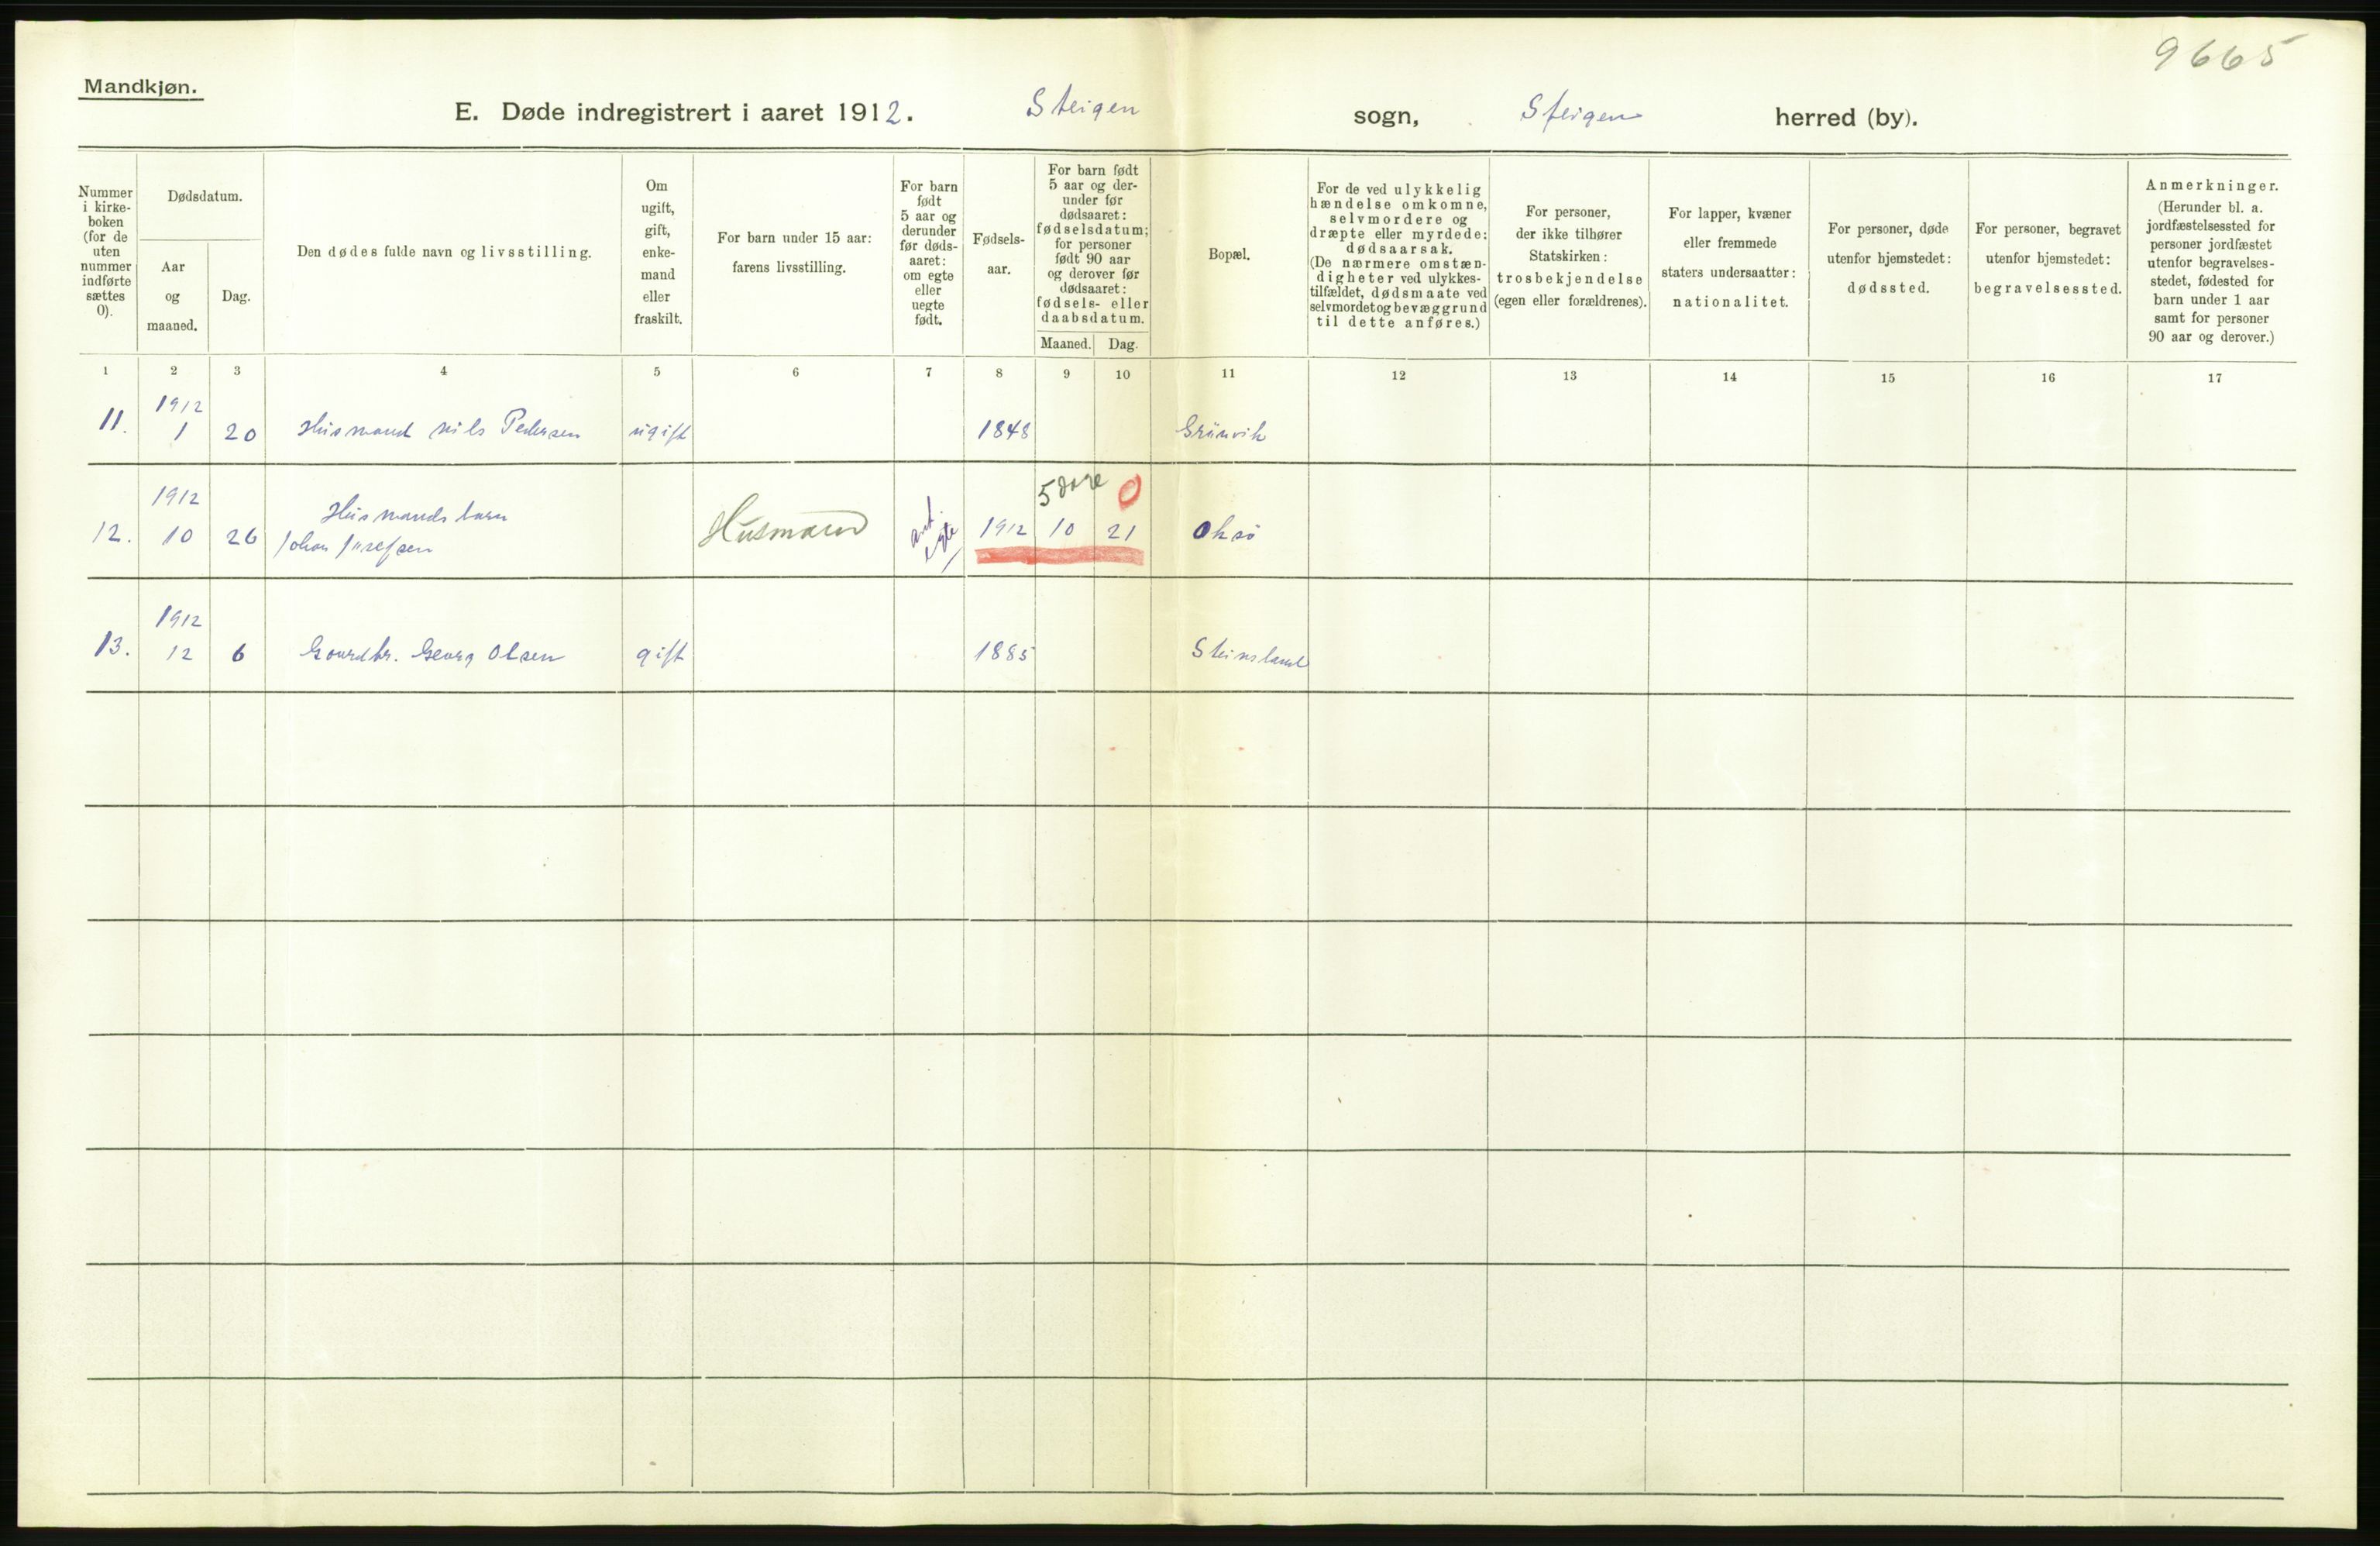 9665
Mandkjøn.
E. Døde indregistrert i aaret 1912. Steigen sogn, Steigen herred (by).
Nummer
i kirke-
boken
(for de
uten
nummer
indførte
sættes
0).
Dødsdatum.
Aar
og
maaned.
Dag.
Den dødes fulde navn og livsstilling.
Om
ugift,
gift,
enke-
mand
eller
fraskilt.
For barn under 15 aar:
farens livsstilling.
For barn
født
5 aar og
derunder
før døds-
aaret:
om egte
eller
uegte
født.
Fødsels-
aar.
For barn født
5 aar og der-
under før
dødsaaret:
fødselsdatum;
for personer
født 90 aar
og derover før
dødsaaret:
fødsels- eller
daabsdatum.
Maaned. Dag.
Bopæl.
For de ved ulykkelig
hændelse omkomne,
selvmordere og
dræpte eller myrdede:
dødsaarsak.
(De nærmere omstæn-
digheter ved ulykkes-
tilfældet, dødsmaate ved
selvmordet og bevæggrund
til dette anføres.)
For personer,
der ikke tilhører
Statskirken:
trosbekjendelse
(egen eller forældrenes).
For lapper, kvæner
eller fremmede
staters undersaatter:
nationalitet.
For personer, døde
utenfor hjemstedet:
dødssted.
For personer, begravet
utenfor hjemstedet:
begravelsessted.
Anmerkninger.
(Herunder bl. a.
jordfæstelsessted for
personer jordfæstet
utenfor begravelses-
stedet, fødested for
barn under 1 aar
samt for personer
90 aar og derover.)
1 2 3 4 5 6 7 8 9 10 11 12 13 14 15 16 17
1912
11. 1 20 Husmand Nils Pedersen ugift 1848 Grünvik
5 0
1912 Husmands barn
12. 10 26 Johan Josefsen Husmand egte 1912 10 21
1912
13. 12 6 Gaardbr. Georg Olsen gift 1885 Steinsland